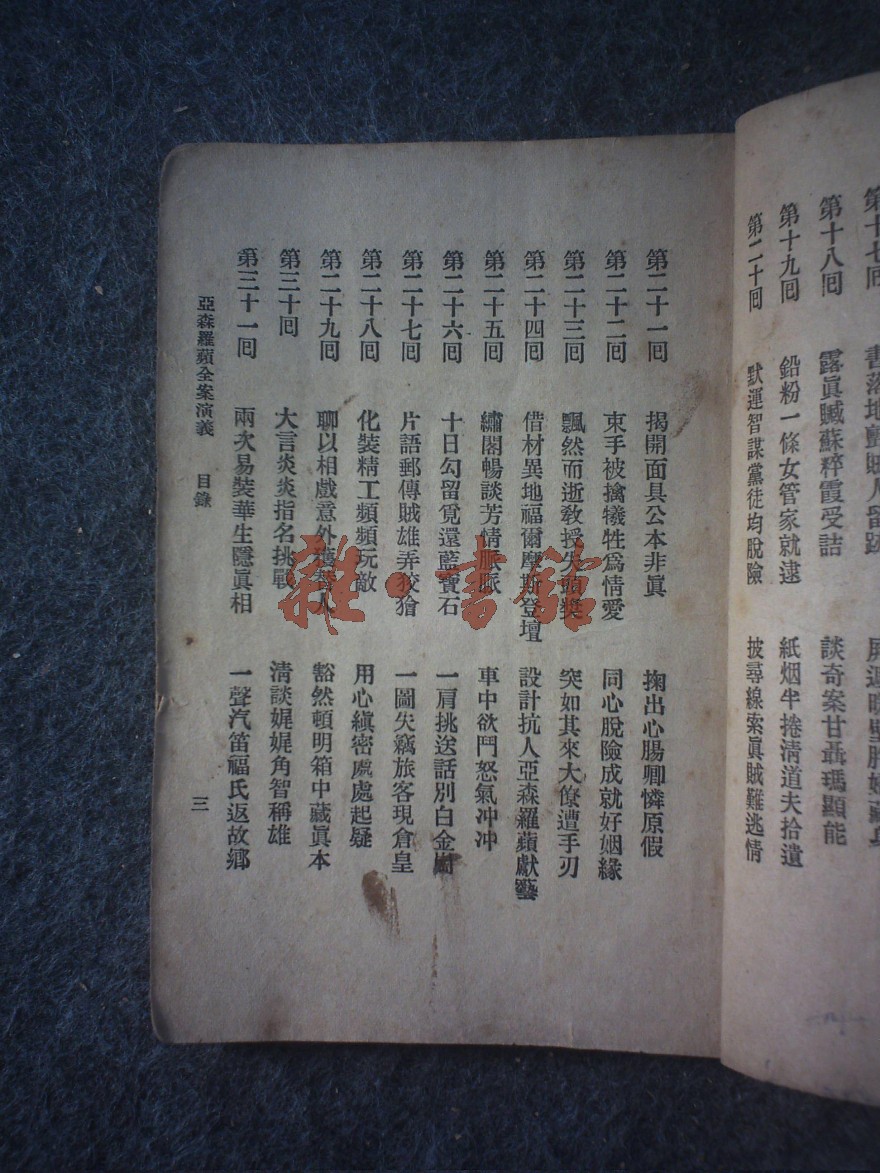 第十七回 書落地
第十八回 露眞贓蘇粹霞受詰 談奇案甘聶瑪顯能
第十九回 鉛粉一條女管家就逮 紙烟半捲淸道夫拾遺
第二十回 默運智謀黨徒均脫險 披尋線索眞賊難逃情
第二十一回 揭開面具公本非眞 掬出心腸卿憐原假
第二十二回 束手被擒犧牲爲情愛 同心脫險成就好姻緣
第二十三回 飄然而逝敎授失頭獎 突如其來大僚遭手刃
第二十四回 借材異地福爾摩斯登壇 設計抗人亞森羅蘋獻藝
第二十五回 繡閣暢談芳情脈脈 車中欲鬥怒氣冲冲
第二十六回 十日勾留覓還藍寶石 一肩挑送話別白金
第二十七回 片語郵傳賊雄弄狡獪 一圖失竊旅客現倉皇
第二十八回 化裝精工頻頻玩敵 用心縝密處處起疑
第二十九回 聊以相戲意外 豁然頓明箱中藏眞本
第三十回 大言炎炎指名挑戰 淸談娓娓角智稱雄
第三十一回 兩次易裝華生隱眞相 一聲汽笛福氏返故鄕
亞森羅蘋全案演義 目錄 三
雜·書館